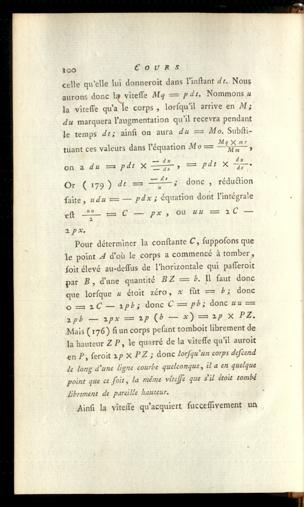 100 COURS
celle qu'elle lui donneroit dans l'instant dt. Nous
aurons donc la vitesse Mq = pdt. Nommons u
la vitesse qu'a le corps, lorsqu'il arrive en M;
du marquera l'augmentation qu'il recevra pendant
le temps dt; ainsi on aura du = Mo. Substi-
tuant ces valeurs dans l'équation Mo = Mq × nr / Mn,
on a du = pdt × - dx / - ds, = pdt × dx / ds.
Or (179) dt = - ds / u; donc, réduction
faite, udu = - pdx; équation dont l'intégrale
est uu / 2 = C - px, ou uu = 2C -
2px.
Pour déterminer la constante C, supposons que
le point A d'où le corps a commencé à tomber,
soit élevé au-dessus de l'horizontale qui passeroit
par B, d'une quantité BZ = b. Il faut donc
que lorsque u étoit zéro, x fût = b; donc
0 = 2C - 2pb; donc C = pb; donc uu =
2pb - 2px = 2p (b - x) = 2p × PZ.
Mais (176) si un corps pesant tomboit librement de
la hauteur ZP, le quarré de la vitesse qu'il auroit
en P, seroit 2p × PZ; donc lorsqu'un corps descend
le long d'une ligne courbe quelconque, il a en quelque
point que ce soit, la même vitesse que s'il étoit tombé
librement de pareille hauteur.
Ainsi la vitesse qu'acquiert successivement un